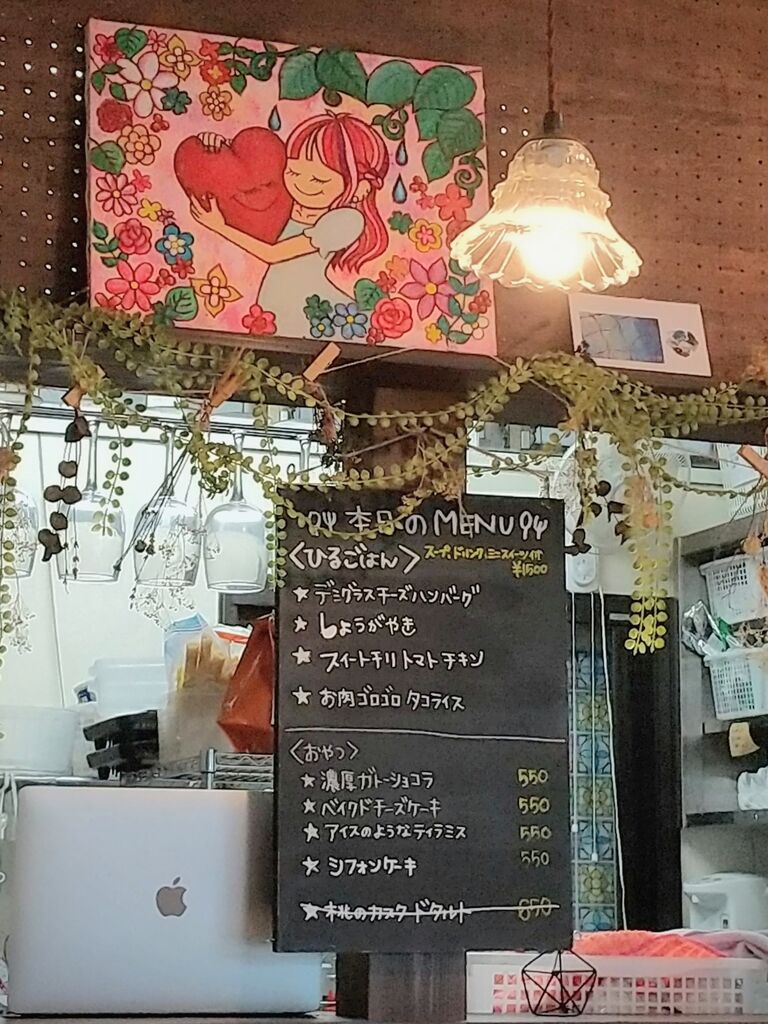 本日のMENU
<ひるごはん> スープ、ドリンク、ミニスイーツ付
¥1500
★ デミグラスチーズハンバーグ
★ しょうがやき
★ スイートチリトマトチキン
★ お肉ゴロゴロタコライス
<おやつ>
★ 濃厚ガトーショコラ 550
★ ベイクドチーズケーキ 550
★ アイスのようなティラミス 550
★ シフォンケーキ 550
★ 桃のカスタードタルト 850